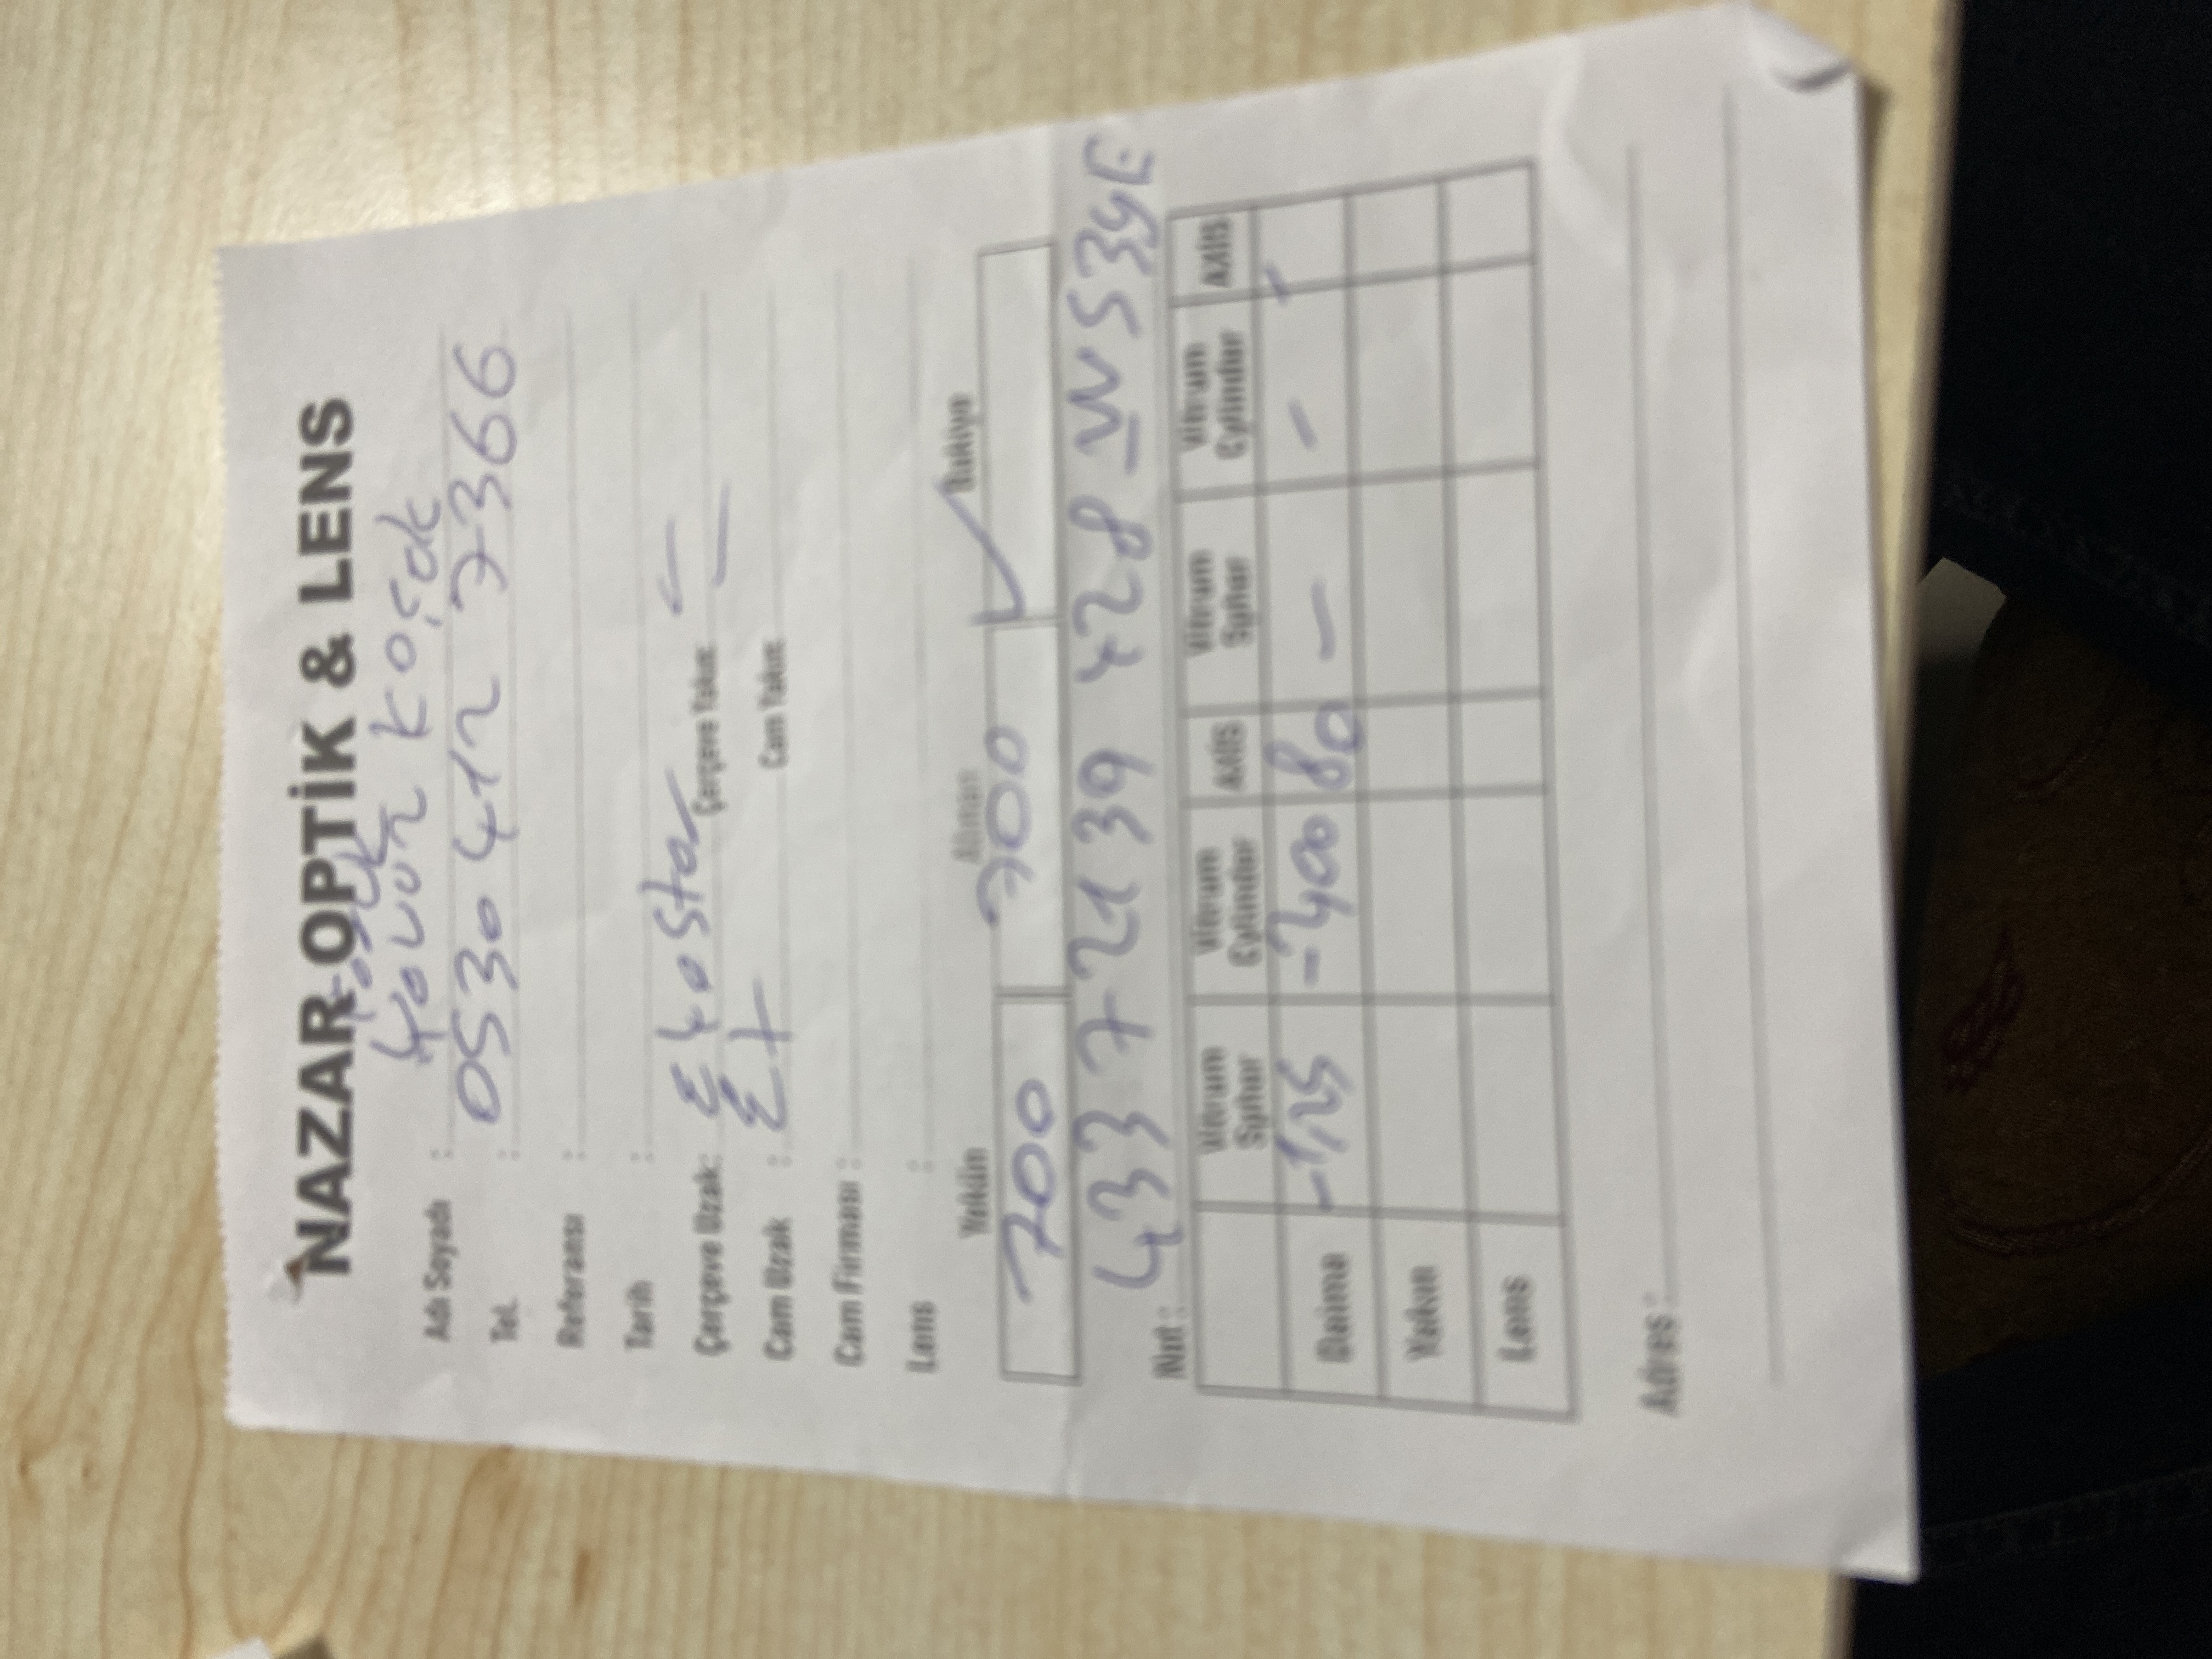 NAZAR OPTİK & LENS
Adı Soyadı : Yavuz Koçak
Tel. : 0530 412 7366
Referansı :
Tarih :
Çerçeve Uzak: Çerçeve Yakın:
Cam Uzak : Cam Yakın:
Cam Firması :
Lens :
Yekün Alınan Bakiye
700 700 ✓
Not : 433 7 21 39 428 WS39E
Vitrum Spher Vitrum Cylinder AXİS Vitrum Spher Vitrum Cylinder AXİS
Daima -1,25 80 - - -
Yakın
Lens
Adres :